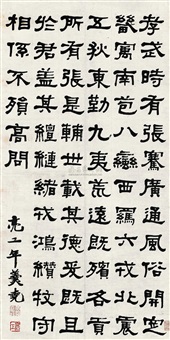 孝武時有張騫廣通風俗開定
畿寓南苞八蠻西羈六戎北震
五狄東勤九夷荒遠既殯各貢
所有張是輔世載其德爰既且
於君蓋其繵縺戎鴻牧守
相係不殞高問